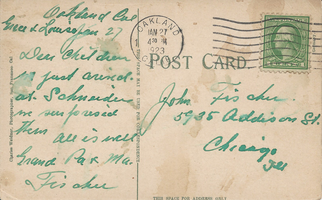 Oakland Cal
Grace & Louise Jan 27
Dear Children
just arrived
at Schneiders
as surprised
them all is well
Grand Pa & Ma
Fischer
OAKLAND
JAN 27
4 PM
1923
POST CARD.
John Fischer
5935 Addison St
Chicago
Ill
THIS SPACE FOR ADDRESS ONLY